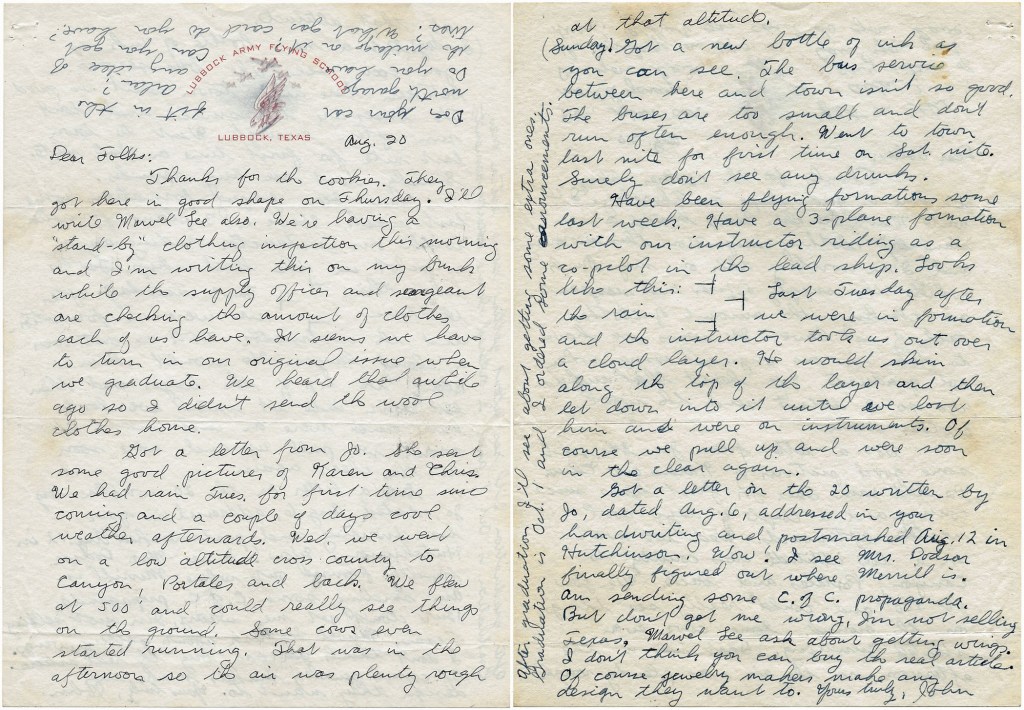 LUBBOCK ARMY FLYING SCHOOL
LUBBOCK, TEXAS
Aug. 20
Dear Folks:
Thanks for the cookies. They
got here in good shape on Thursday. I'll
write Marvel Lee also. We're having a
"stand-by" clothing inspection this morning
and I'm writing this on my bunk
while the supply officer and sergeant
are checking the amount of clothes
each of us have. It seems we have
to turn in our original issue when
we graduate. We heard that awhile
ago so I didn't send the wool
clothes home.
Got a letter from Jo. She sent
some good pictures of Karen and Chris.
We had rain Tues. for first time since
coming and a couple of days cool
weather afterwards. Wed. we went
on a low altitude cross county to
Canyon, Portales and back. We flew
at 500' and could really see things
on the ground. Some cows even
started running. That was in the
afternoon so the air was plenty rough
at that altitude.
(Sunday) Got a new bottle of ink as
you can see. The bus service
between here and town isn't so good.
The buses are too small and don't
run often enough. Went to town
last nite for first time on Sat. nite.
Surely don't see any drunks.
Have been flying formations some
last week. Have a 3-plane formation
with our instructor riding as a
co-pilot in the lead ship. Looks
like this: Last Tuesday after
the rain we were in formation
and the instructor took us out over
a cloud layer. He would skim
along the top of the layer and then
let down into it until we lost
him and were on instruments. Of
course we pull up and were soon
in the clear again.
Got a letter on the 20 written by
Jo, dated Aug. 6, addressed in your
handwriting and postmarked Aug. 12 in
Hutchinson. Wow! I see Mrs. Dodson
finally figured out where Merrill is.
Am sending some C. of C. propaganda.
But don't get me wrong, I'm not selling
Texas. Marvel Lee ask about getting wings.
I don't think you can buy the real article.
Of course jewelry makers make any
design they want to. Yours truly, John
After graduation I'll see about getting some extra ones.
Graduation is Oct. 1 and I ordered some announcements.
Does your car
fit in the
north garage
Alan?
Do you have any idea of
the mileage on it? Can you get
What gas card do you have?